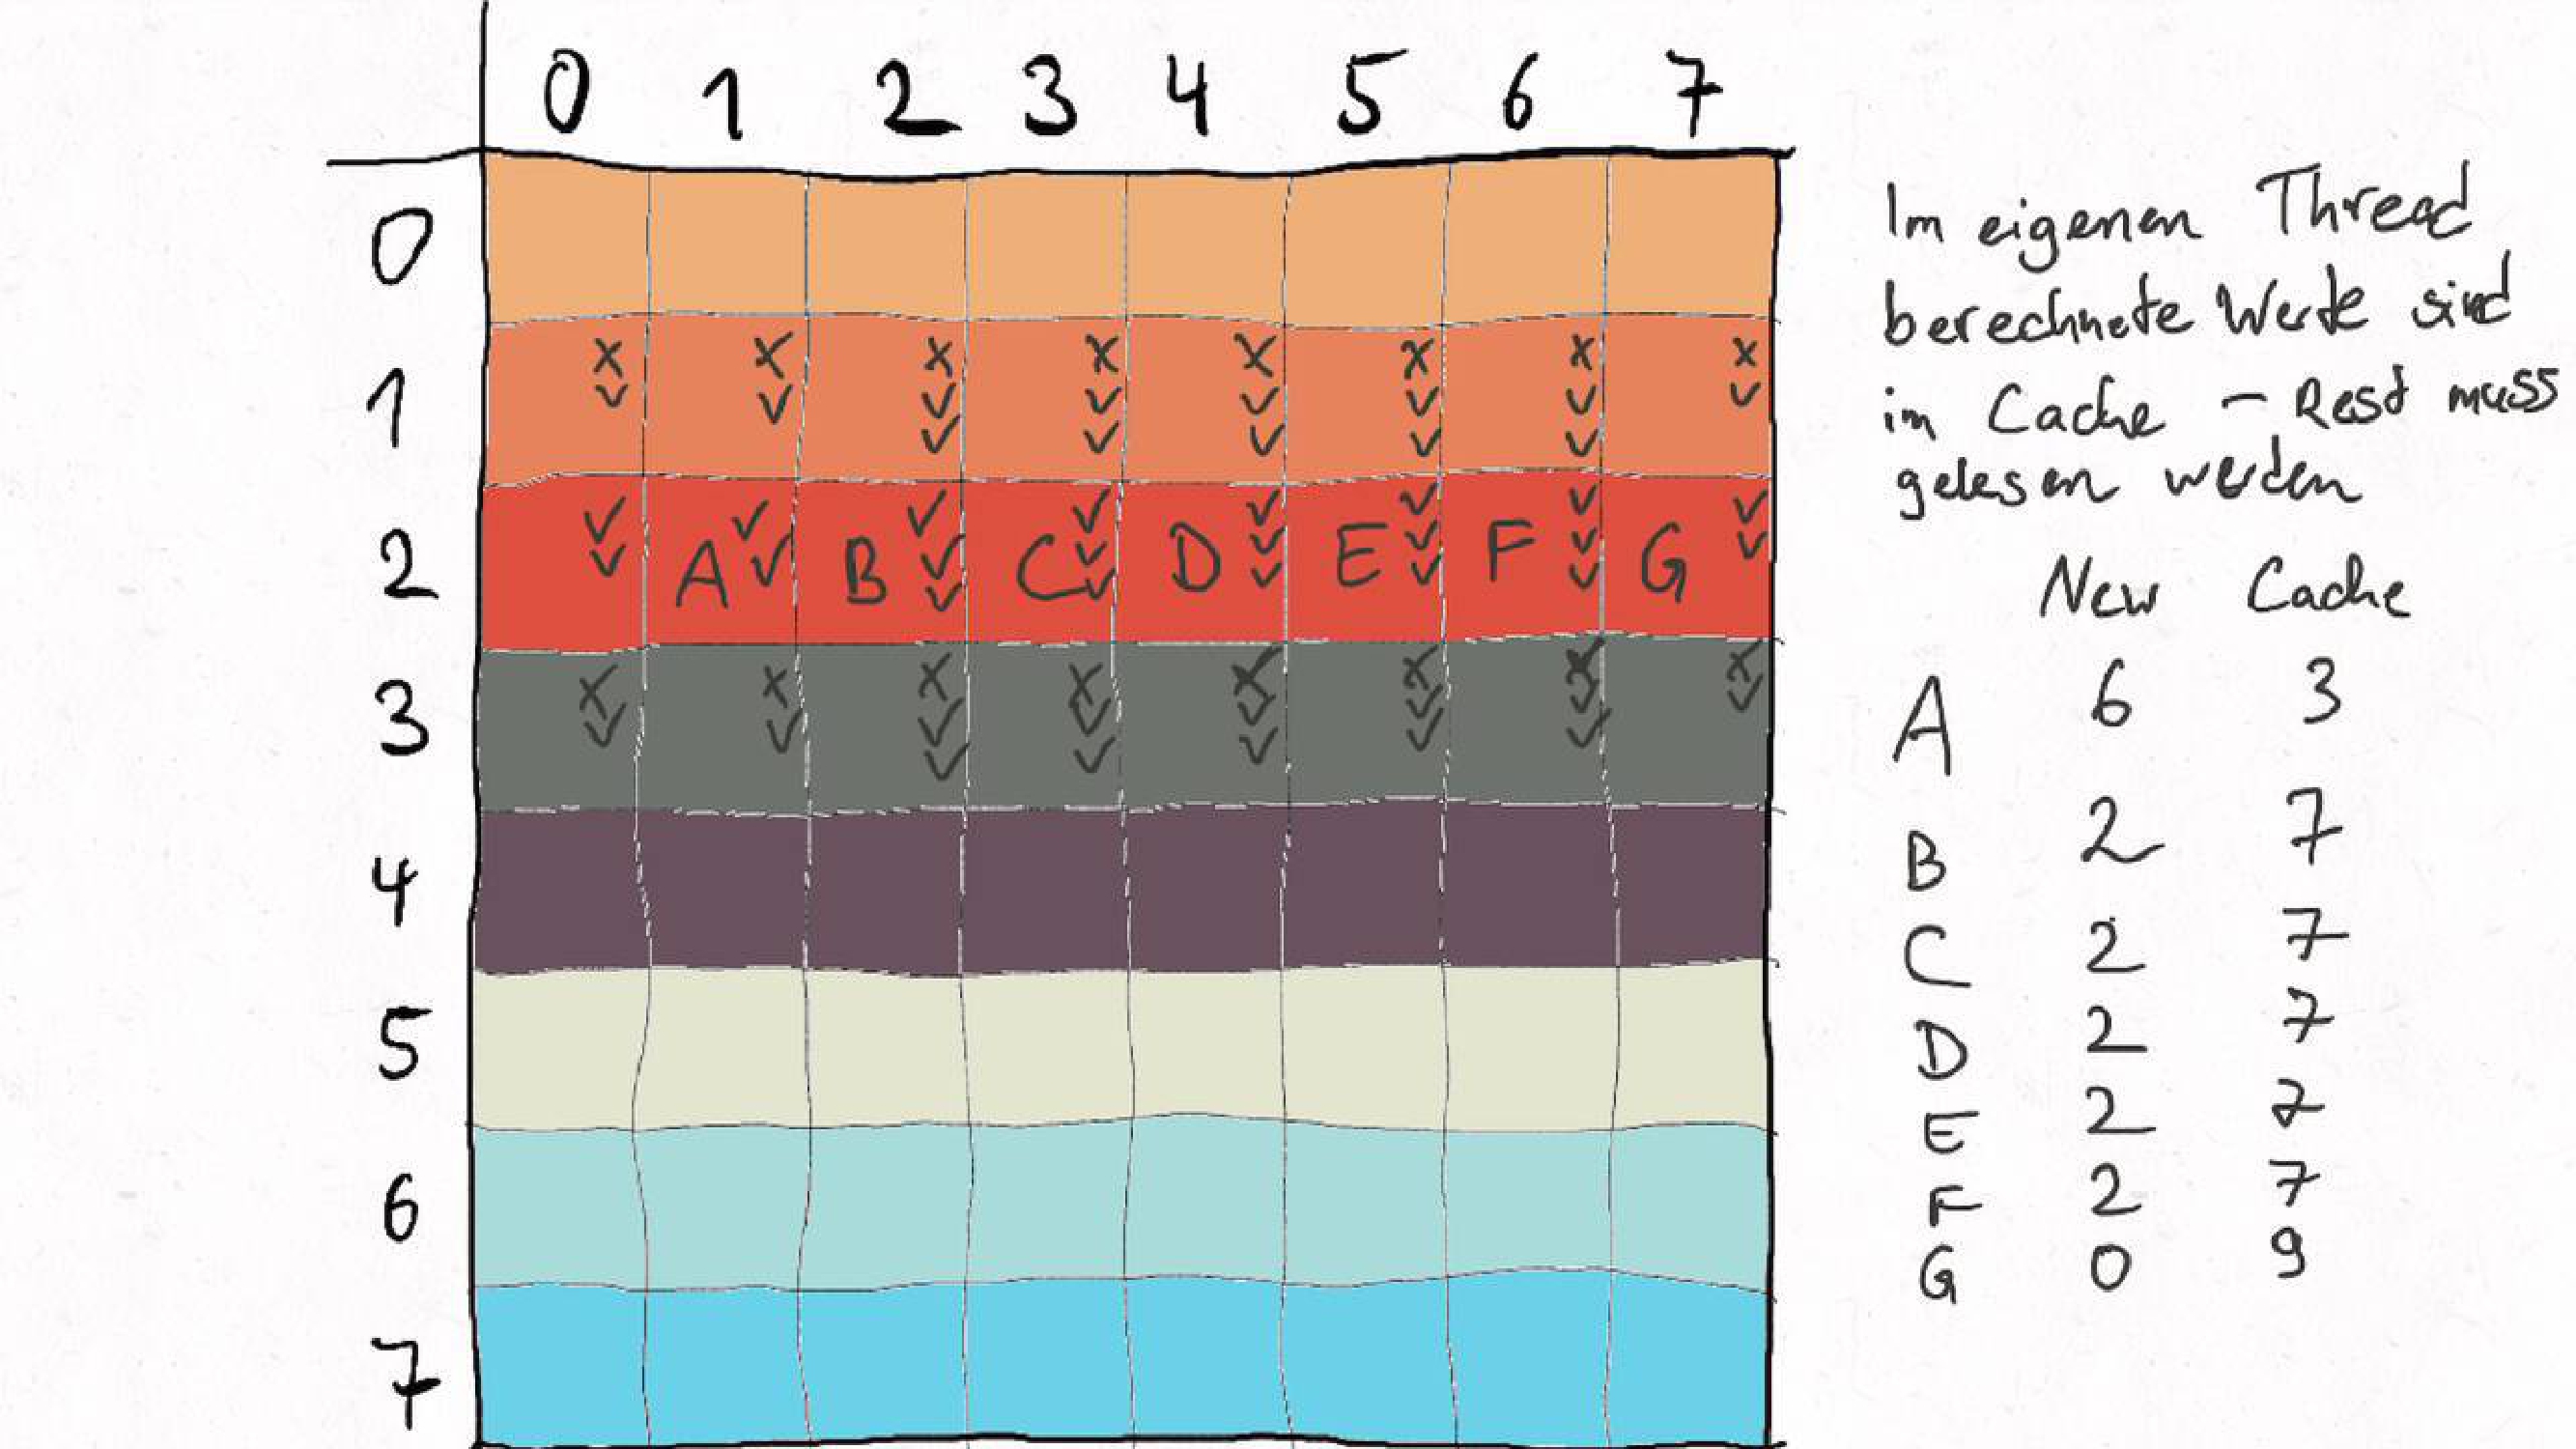 0 1 2 3 4 5 6 7
0
1
2 A B C D E F G
3
4
5
6
7
Im eigenen Thread
berechnete Werte sind
im Cache - Rest muss
gelesen werden
New Cache
A 6 3
B 2 7
C 2 7
D 2 7
E 2 7
F 2 7
G 0 9